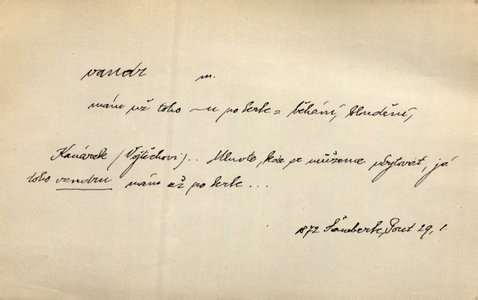 vandr m.
mám už toho ~u po krk = běhání, bloudění,
Kanárek (Vojtěchovi) .. Mluvte, kde se můžeme ubytovat, já
toho vandru mám až po krk ...
1872 Šamberk, Pout 29, 1